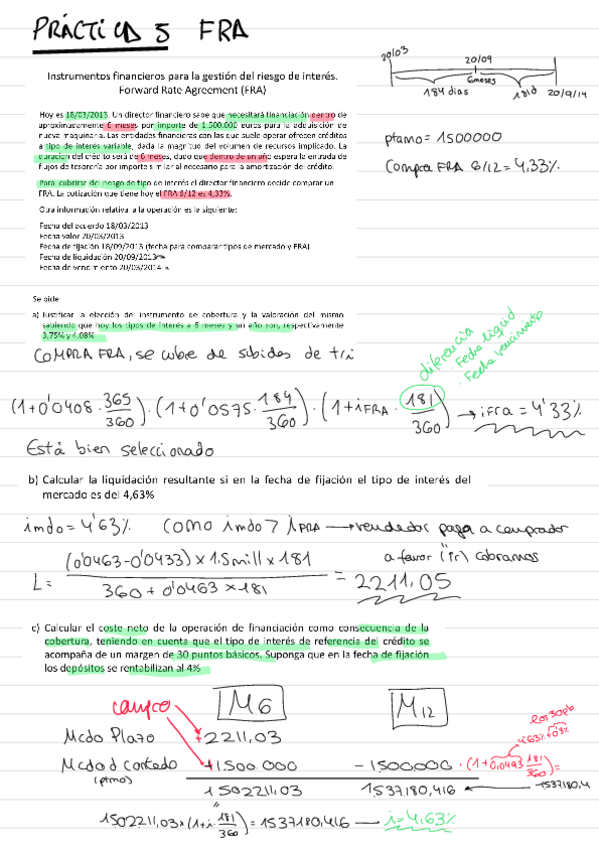 PRÁCTICA 5 FRA
20/03
20/09
6 meses
184 dias
181d
20/9/14
Instrumentos financieros para la gestión del riesgo de interés.
Forward Rate Agreement (FRA)
Hoy es 18/03/2013. Un director financiero sabe que necesitará financiación dentro de
aproximadamente 6 meses por importe de 1.500.000 euros para la adquisición de
nueva maquinaria. Las entidades financieras con las que suele operar ofrecen créditos
a tipo de interés variable, dada la magnitud del volumen de recursos implicado. La
duración del crédito será de 6 meses, dado que dentro de un año espera la entrada de
flujos de tesorería por importe similar al necesario para la amortización del crédito.
Para cubrirse del riesgo de tipo de interés el director financiero decide comprar un
FRA. La cotización que tiene hoy el FRA 6/12 es 4,33%.
Otra información relativa a la operación es la siguiente:
Fecha del acuerdo 18/03/2013
Fecha valor 20/03/2013
Fecha de fijación 18/09/2013 (fecha para comparar tipos de mercado y FRA)
Fecha de liquidación 20/09/2013
Fecha de vencimiento 20/03/2014
ptamo = 1500000
Compra FRA 6/12 = 4,33%
Se pide:
a) Justificar la elección del instrumento de cobertura y la valoración del mismo
sabiendo que hoy los tipos de interés a 6 meses y un año son, respectivamente
3,75% y 4,08%
COMPRA FRA, se cubre de subidas de t/i
diferencia
· Fecha liquid
· Fecha vencimiento
(1+0'0408 · 365/360) · (1+0'0375 · 184/360) · (1+iFRA · 181/360) → ifra = 4'33%
Está bien seleccionado
b) Calcular la liquidación resultante si en la fecha de fijación el tipo de interés del
mercado es del 4,63%
imdo = 4'63% Como imdo > iFRA → vendedor paga a comprador
L = (0'0463-0'0433) x 1.5mill x 181 / 360 + 0'0463 x 181 = 2211,05
a favor (Ir) cobramos
c) Calcular el coste neto de la operación de financiación como consecuencia de la
cobertura, teniendo en cuenta que el tipo de interés de referencia del crédito se
acompaña de un margen de 30 puntos básicos. Suponga que en la fecha de fijación
los depósitos se rentabilizan al 4%
M6 M12
campro
los 30pb
4'63% + 0'3%
Mcdo Plazo +2211,03
Mcdo d contado +1.500.000 -1.500.000 · (1+0,0493 181/360) =
(ptmo)
1502211,03 1537.180,416 ← -1537180,4
1502211,03 x (1+i · 181/360) = 1537180,416 → i = 4,63%